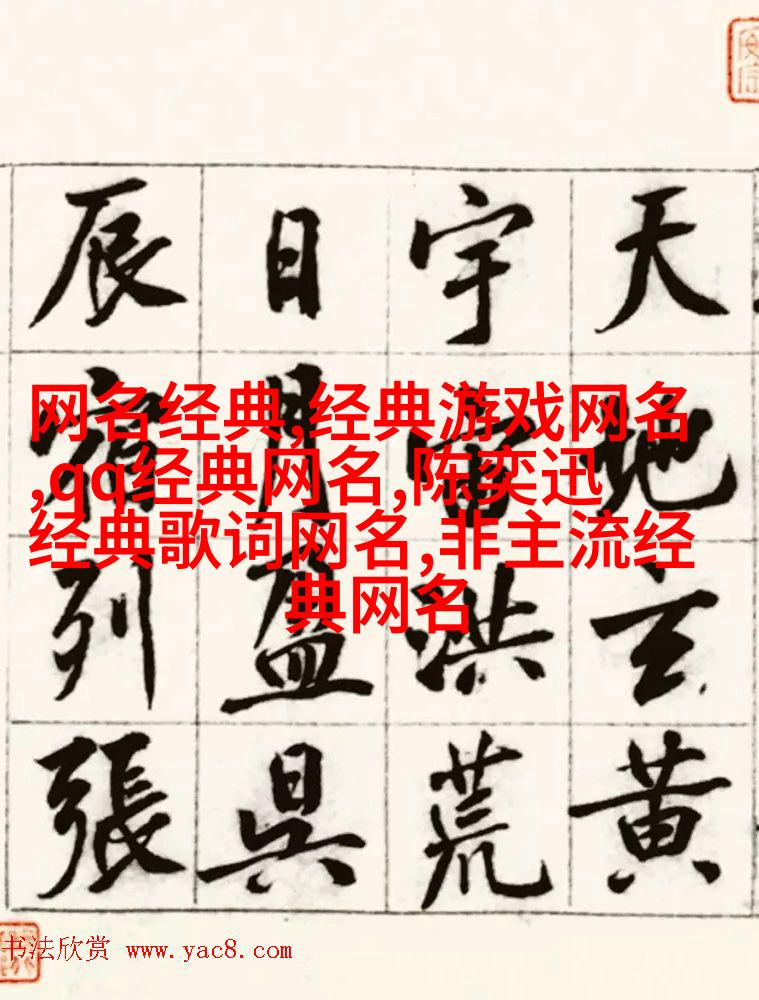 天地玄黄
宇宙洪荒
日月盈昃
辰宿列張
网名经典,经典游戏网名
,qq经典网名,陈奕迅
经典歌词网名,非主流经
典网名
书法欣赏 www.yac8.com